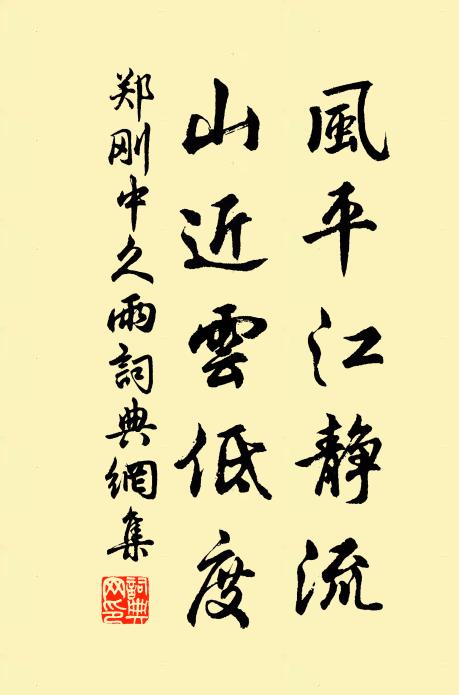 風平江靜流
山近雲低度
郑刚中久雨詞典網集
詞典